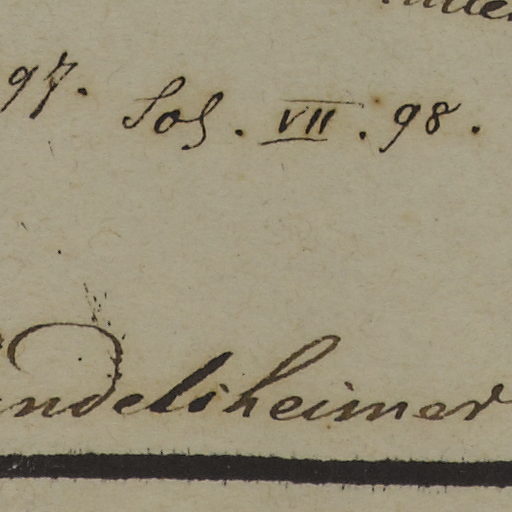 97. Fol. VII. 98.
ndelsheimer